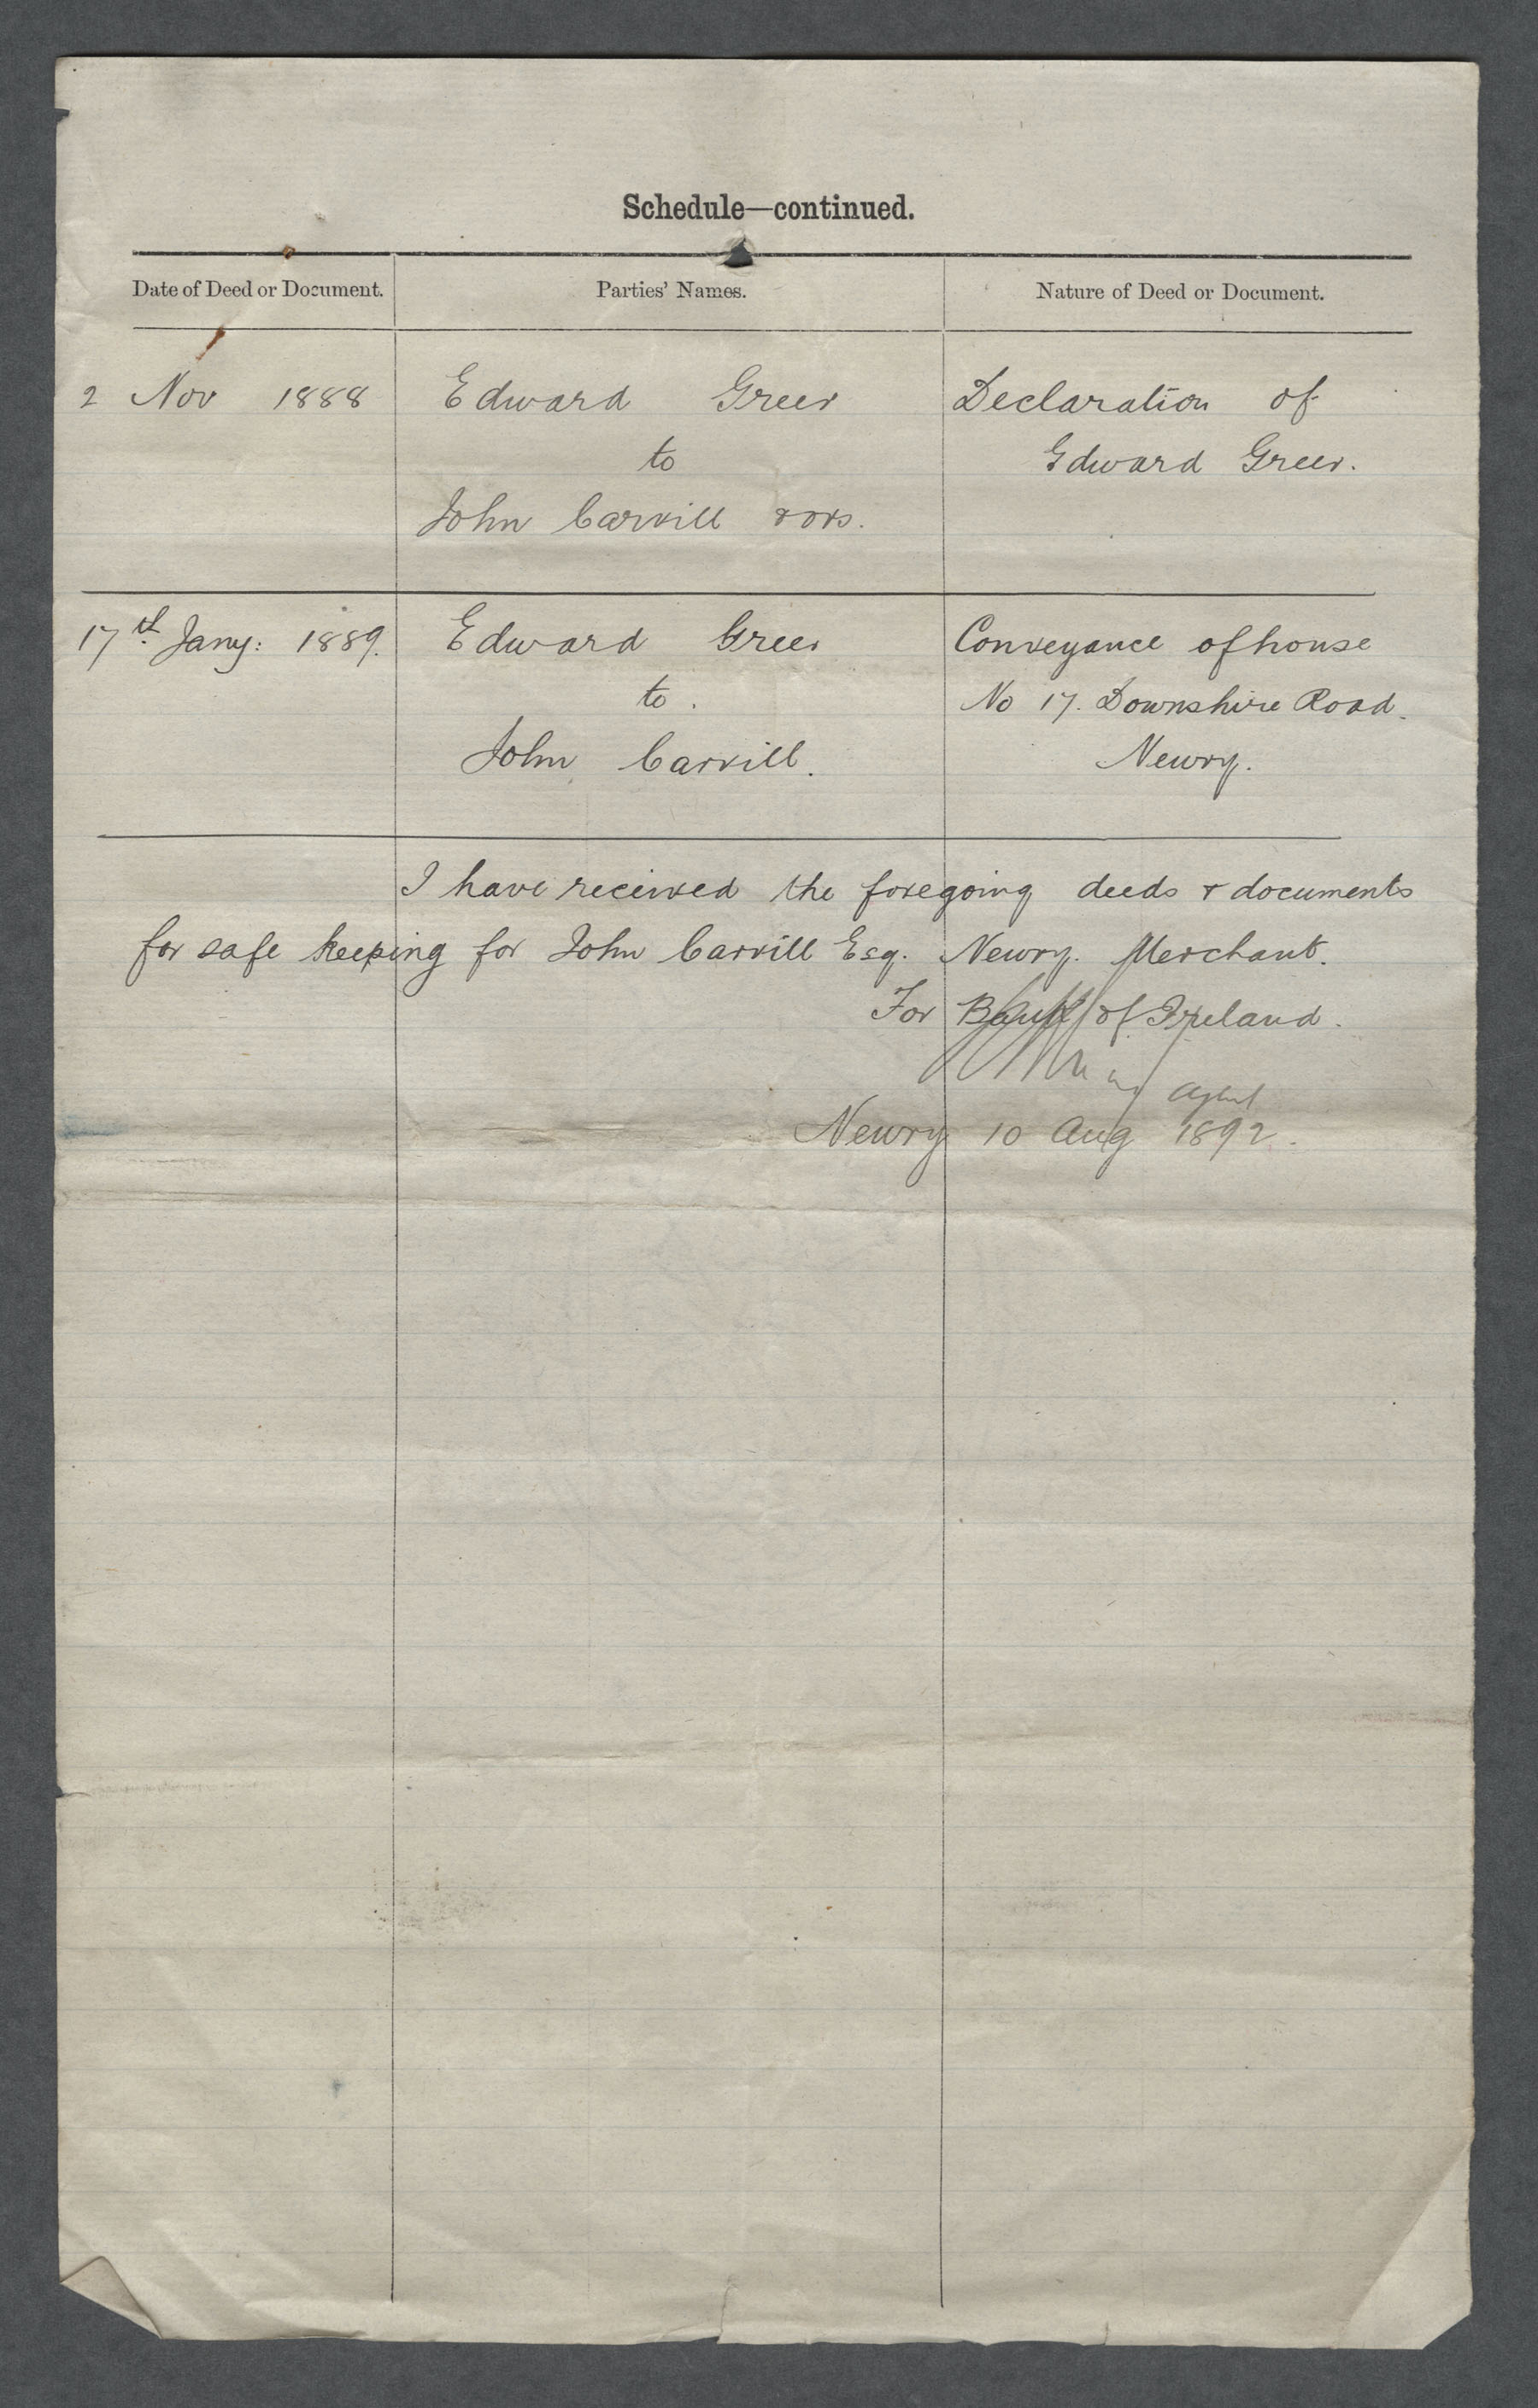 Schedule—continued.
Date of Deed or Document. Parties' Names. Nature of Deed or Document.
2 Nov 1888 Edward Greer Declaration of
to Edward Greer.
John Carvill & ors.
17th Jany: 1889. Edward Greer Conveyance of house
to. No 17. Downshire Road.
John Carvill. Newry.
I have received the foregoing deeds & documents
for safe keeping for John Carvill Esq. Newry. Merchant.
For Bank of Ireland.
Agent
Newry 10 Aug 1892.